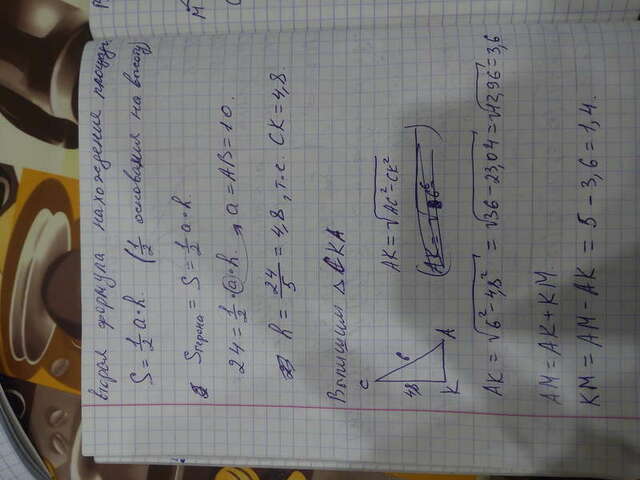 вторая формула нахождение площади
S = 1/2 a·h. (1/2 основания на высоту)
Sгерона = S = 1/2 a·h.
24 = 1/2·a·h. → a = AB = 10.
h = 24/5 = 4,8, т.е. CK = 4,8.
Выпишим ΔCKA
C
6
4,8
K
A
AK = √AC² - CK²
AK = √6² - 4,8² = √36 - 23,04 = √12,96 = 3,6
AM = AK + KM
KM = AM - AK = 5 - 3,6 = 1,4.
M